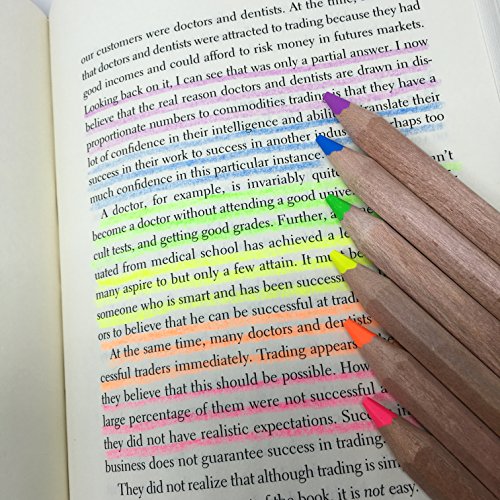 our customers were doctors and dentists. At the time,
that doctors and dentists were attracted to trading because they had
good incomes and could afford to risk money in futures markets.
Looking back on it, I can see that was only a partial answer. I now
believe that the real reason doctors and dentists are drawn in dis-
proportionate numbers to commodities trading is that they have a
lot of confidence in their intelligence and abili translate their
success in their work to success in another indus haps too
much confidence in this particular instance.
A doctor, for example, is invariably quite n't
become a doctor without attending a good unive
cult tests, and getting good grades. Further, a
uated from medical school has achieved a le
many aspire to but only a few attain. It mu
someone who is smart and has been success
ors to believe that he can be successful at tradi
At the same time, many doctors and dentists
cessful traders immediately. Trading appears
they believe that this should be possible. How
large percentage of them were not successful a
they did not have realistic expectations. Suc in
business does not guarantee success in trading.
They did not realize that although trading is sim
of the book, it is not easy.